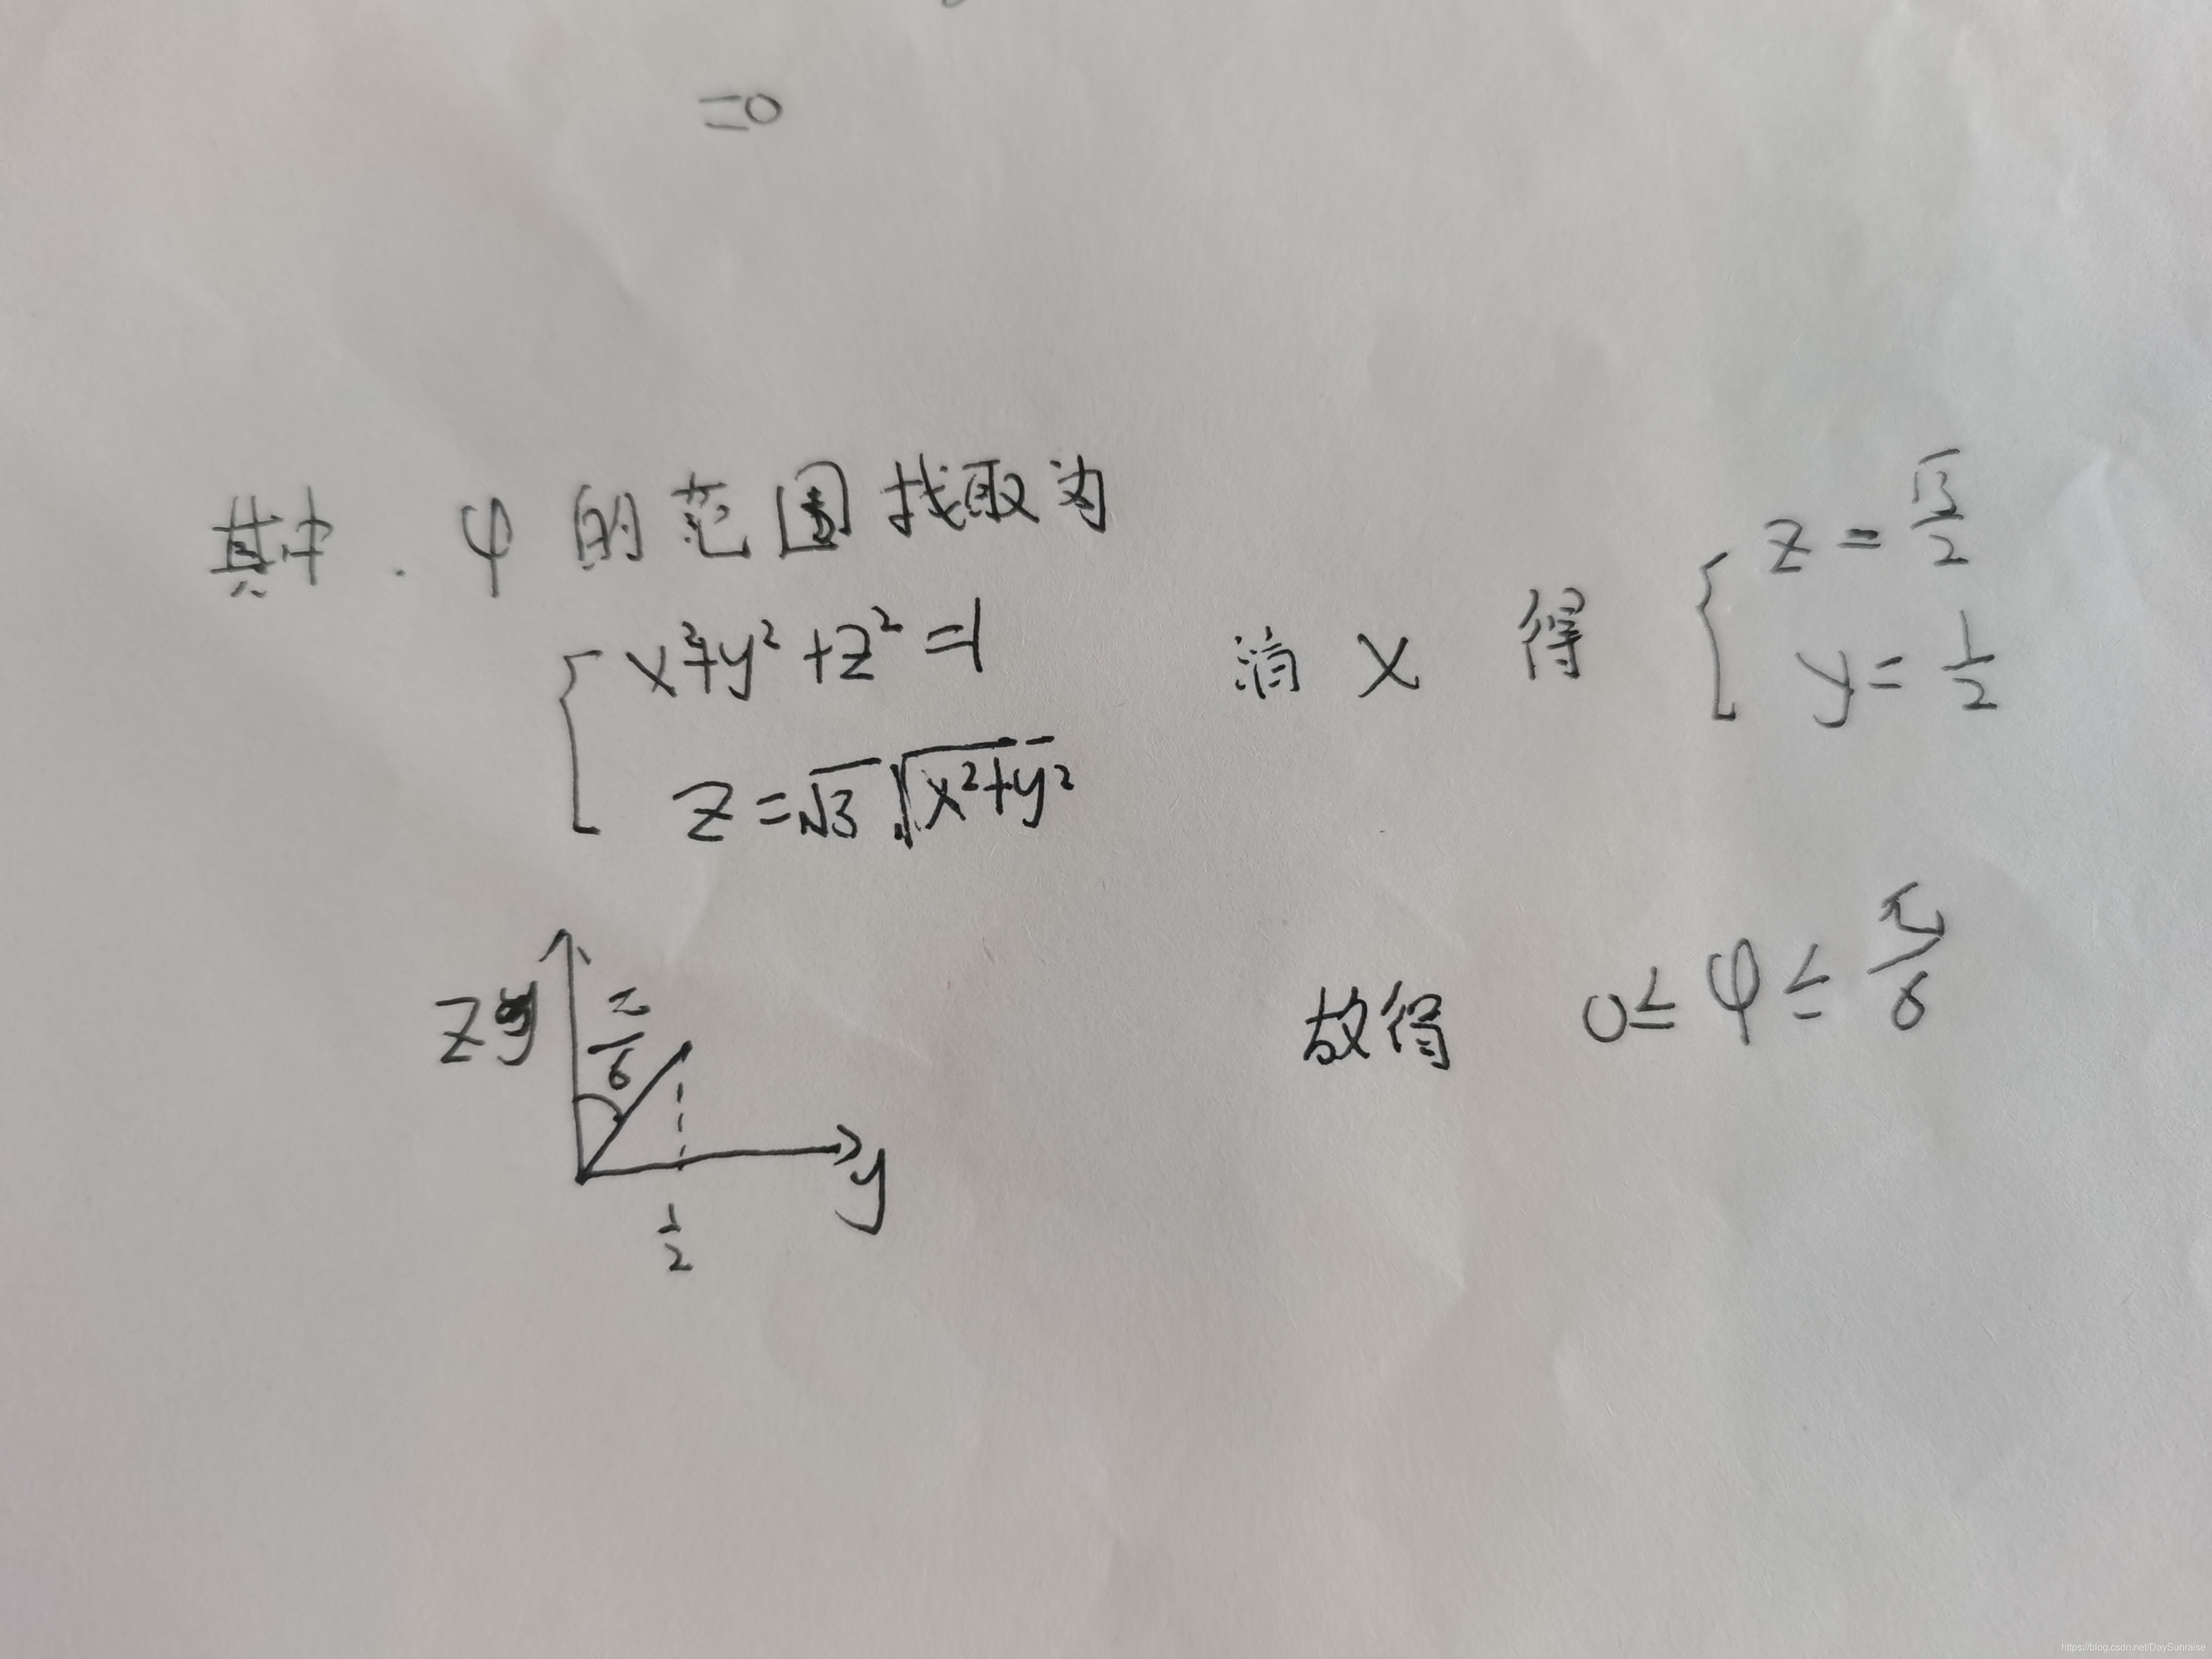 =0
其中. φ的范围找取为
{ x²+y²+z²=1
z=√3 √(x²+y²)
消 x 得 { z = √3/2
y = 1/2
z
π/6
y
1/2
故得 0≤φ≤π/6
https://blog.csdn.net/DaySunraise